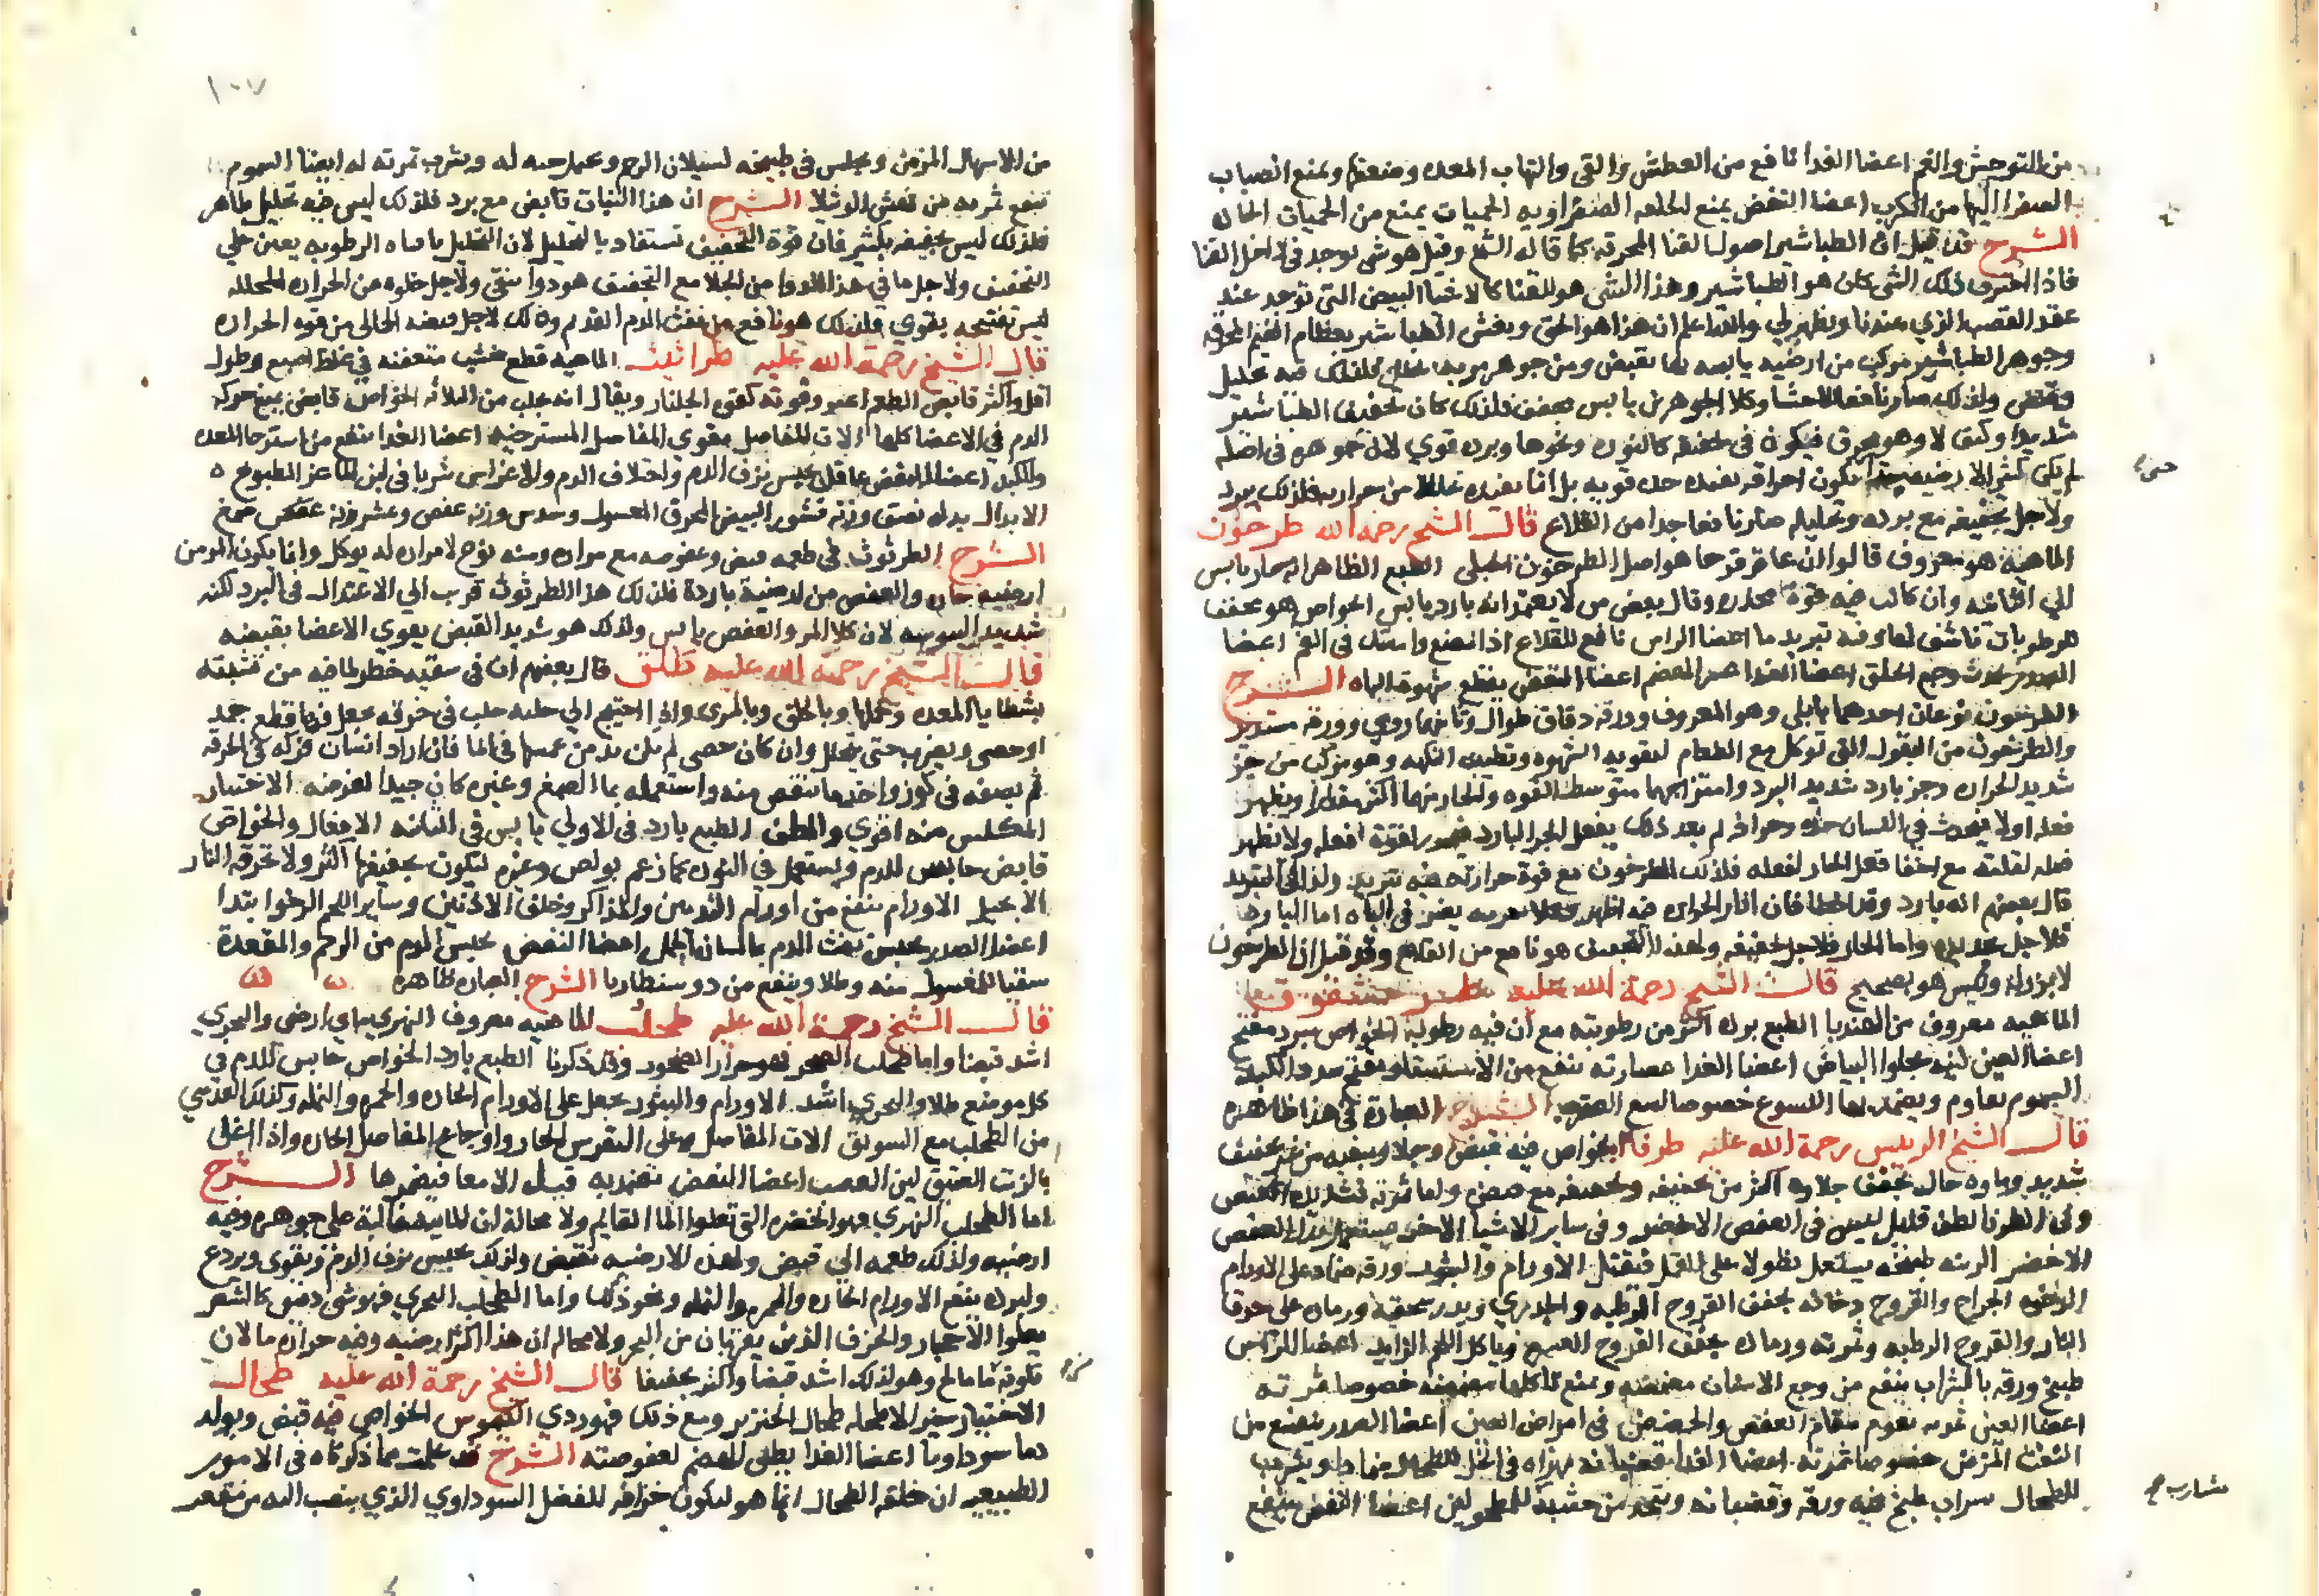 من التوحش والغم اعضا الغدا نافع من العطش والقى والتهاب المعده وضعفها ويمنع انصباب
الصفرا اليها من الكرب اعضا النفض يمنع الخلفه الصفراويه الحميات يمنع من الحميات الحاده
الشرح قد قيل ان الطباشير اصول القنا المحرقه كما قاله الشيخ وقيل هو شى يوجد فى داخل القنا
فاذا احترق ذلك الشى كان هو الطباشير وهذا الشى هو للقنا كالاخبا البيض التى توجد عند
عقد القصب الذي عندنا ويظهر لي والله اعلم ان هذا هو الحق ويغش الطباشير بعظام الفيل المحرقه
وجوهر الطباشير مركب من ارضيه يابسه بها يقبض ومن جوهر فلذلك فيه تحليل
وقبض ولذلك صار نافعا وكلا الجوهرين يابس مجفف فلذلك كان تجفيف الطباشير
شديدا وكيف لا وهو محرق فيكون فى كالنوره ونحوها وبرده قوي لان جوهره فى اصله
لم يكن كثير الارضيه تكون احراقه يفيده حده قويه بل انما يفيده من حراره فلذلك يبرد
ولاجل تجفيفه مع برده وتحليله صار نافعا جدا من القلاع قال الشيخ رحمه الله طرخون
الماهيه هو معروف قالوا ان عاقرقرحا هو اصل الطرخون الجبلى الطبع الظاهر انه حار يابس
الى الثانيه وان كانت فيه قوة مخدره وقال بعض من لا يعتمد انه بارد يابس الخواص هو مجفف
للرطوبات ناشف لها وفيه تبريد ما اعضا الراس نافع للقلاع اذا مضغ وامسك فى الفم اعضا
الصدر يحدث وجع الحلق اعضا الغدا عسر الهضم اعضا النفض يقطع شهوة الباه الشرح
الطرخون نوعان احدهما بابلى وهو المعروف وورقه دقاق طوال وثانيهما رومي وورقه مستدير
والطرخون من البقول التى توكل مع الطعام لتقويه الشهوه وتطييب النكهه وهو مركب من جز
شديد الحراره وجز بارد شديد البرد وامتزاجهما متوسط القوه والحار منهما اكثر مقدارا ويظهر
فعله اولا فيحدث فى اللسان حده وحراقه ثم بعد ذلك يفعل الجز البارد فعله ولا يظهر
فعله لقلته مع اخفا فعل الحار لفعله فلذلك الطرخون مع قوة حرارته فيه تبريد ولذلك
قال بعضهم انه بارد وقد اخطا فان اثار الحراره فيه اظهر يضر فى الباه اما البارد
فلاجل تبريده واما الحار فلاجل تجفيفه ولهذا القبض هو نافع من القلاع وقد قيل ان الطرخون
لا بزر له وليس هو بصحيح قال الشيخ رحمة الله عليه
الماهيه معروف من الهندبا الطبع برده اكثر من رطوبته مع ان فيه رطوبة الخواص مبرد مفتح
اعضا العين لبنه يجلوا البياض اعضا الغدا عصارته تنفع من الاستسقا ويفتح سدد الكبد
السموم يقاوم ويضمد بها اللسوع خصوصا لسع العقرب الشرح العبارة فى هذا ظاهره
قال الشيخ الرييس رحمة الله عليه طرفا الخواص فيه قبض وجلا وتنقيه من غير تجفيف
شديد وماوه جال مجفف جلاوه اكثر من تجفيفه وتجفيفه مع قبض واما ثمرته شديد القبض
وفى الطرفا لطف قليل ليس فى العفص الاخضر وفى ساير الاشيا الاخر يستعمل بدل العفص
الاخضر الزينه طبيخه يستعمل نطولا على القمل فيقتل الاورام والبثور ورقه ضماد على الاورام
الرخوه الجراح والقروح دخانه يجفف القروح الرطبه والجدري ويذر سحيقه ورماده على حرق
النار والقروح الرطبه وثمرته ورماده يجفف القروح العسره وياكل اللحم الزايد اعضا الراس
طبيخ ورقه بالشراب ينفع من وجع الاسنان مضمضه ويمنع تاكلها خصوصا ثمرته
اعضا العين ثمرته تقوم مقام العفص والحضض فى امراض العين اعضا الصدر ينفع من
النفث المزمن خصوصا ثمرته اعضا الغدا قضبانه مهراه فى الخل للطحال ضمادا ويشرب
للطحال شراب طبخ فيه ورقه وقضبانه ويتخذ من خشبه للمطحولين اعضا النفض ينفع
شارب
١٠٧
من الاسهال المزمن ويجلس فى طبيخه لسيلان الرحم وعمل حبه له ويشرب ثمرته له ايضا السموم
تنفع ثمرته من نهش الرتيلا الشرح ان هذا النبات قابض مع برد فلذلك ليس فيه تحليل ظاهر
فلذلك ليس تجفيفه بكثير فان قوة التجفيف تستفاد بالتحليل لان التحليل بافناه الرطوبه يعين على
التجفيف ولاجل ما فى هذا الدوا من الجلا مع التجفيف هو دوا منقى ولاجل خلوه عن الحراره المحلله
ليس تفتيحه بقوي ولذلك هو نافع من نفث الدم القديم وذلك لاجل قبضه الخالى من قوه الحراره
قال الشيخ رحمة الله عليه طراثيث الماهيه قطع خشب متعفنه في غلظ اصبع وطول
اقل واكثر قابض الطعم اغبر وقوته كقوى الجلنار ويقال انه يجلب من الباديه الخواص قابض يمنع حركه
الدم فى الاعضا كلها الات المفاصل يقوي المفاصل المسترخيه اعضا الغدا ينفع من استرخا المعده
والكبد اعضا النفض عاقل يحبس نزف الدم واختلاف الدم والاغراس شربا فى لبن الماعز المطبوخ
الابدال بدله نصف وزنه قشور البيض المحرق المغسول وسدس وزنه عفص وعشر وزنه صمغ
الشرح الطرثوث فى طعمه قبض وعفوصه مع مراره ومنه نوع لا مراره له يوكل وانما يكون المر من
ارضيه حاره والعفص من ارضية بارده فلذلك هذا الطرثوث قرب الى الاعتدال فى البرد لكنه
شديد اليبوسه لان كلا المر والعفص يابس ولذلك هو شديد القبض يقوي الاعضا بقبضه
قال الشيخ رحمة الله عليه طلق قال بعضهم ان فى سقيه خطر لما فيه من تشبثه
بشظايا المعده وخملها وبالحلق وبالمرى واذا احتيج الى حلبه حلب فى خرقه يجعل فيها قطع جمد
او حصى ويضرب حتى ينحل وان كان حصى لم يكن بد من غمسها فى الما فان اراد انسان حركه فى الخرقه
ثم يصفه فى كوز واخذ ما ينفض منه واستعمله بما الصمغ وغيره كان جيدا لغرضه الاختيار
المكلس منه اقوي والطف الطبع بارد فى الاولى يابس فى الثانيه الافعال والخواص
قابض حابس للدم ويستعمل فى النوره كما زعم بولص وغيره ليكون تجفيفها اكثر ولا تحرقه النار
الا بحيل الاورام ينفع من اورام الثديين والمذاكر وخلف الاذنين وساير اللحم الرخو ابتدا
اعضا الصدر يحبس نفث الدم بما لسان الحمل اعضا النفض يحبس الدم من الرحم والمقعدة
سقيا للمغسول منه وطلا وينفع من دوسنطاريا الشرح العباره ظاهره
قال الشيخ رحمة الله عليه طحلب الماهيه معروف النهري مايي ارضى والبحري
اشد قبضا واما طحلب الصخر فهو حزاز الصخور وقد ذكرنا الطبع بارد الخواص حابس للدم فى
كل موضع طلا والبحري اشد الاورام والبثور يجعل على الاورام الحاره والحمره والنمله وكذلك العدسي
من الطحلب مع السويق الات المفاصل وعلى النقرس الحار واوجاع المفاصل الحاره واذا اغلى
بالزيت العتيق لين العصب اعضا النفض تضمد به قيله الامعا فيضمرها الشرح
اما الطحلب النهري فهو الخضره التى تعلوا الما القايم ولا محاله ان الماييه غالبة على جوهره وفيه
ارضيه ولذلك طعمه الى قبض ولهذه الارضيه تقبض ولذلك يحبس نزف الدم ويقوى ويردع
ولبرده ينفع الاورام الحاره والحمره والنمله ونحو ذلك واما الطحلب البحري فهو شى ادقق كالشعر
يعلوا الاحجار والخزف الذين يقربان من البحر ولا محاله ان هذا اكثر ارضيه وفيه حراره ما لان
تكونه من ما مالح وهو لذلك اشد قبضا واكثر تجفيفا قال الشيخ رحمة الله عليه طحال
الاختيار خير الاطحله طحال الخنزير ومع ذلك فهو ردي الكيموس الخواص فيه قبض ويولد
دما سوداويا اعضا الغدا بطى الهضم لعفوصته الشرح قد علمت مما ذكرناه فى الامور
الطبيعيه ان خلقه الطحال انما هو ليكون خزانه للفضل السوداوي الذي ينصب اليه من مقعر